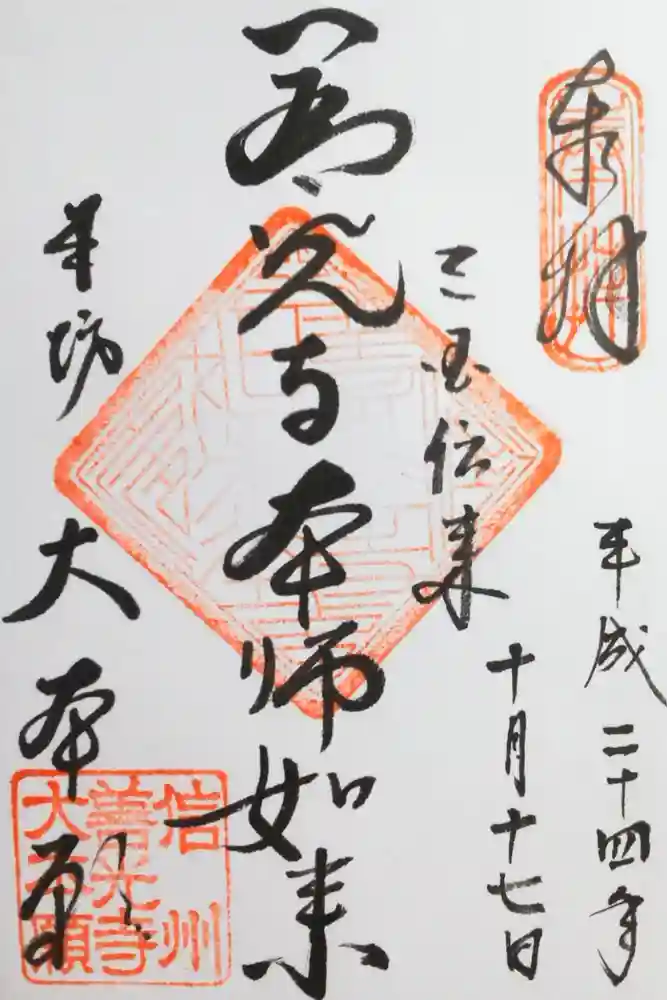 奉拝
平成二十四年
十月十七日
三国伝来
善光寺本師如来
本坊 大本願
信州
善光寺
大本願